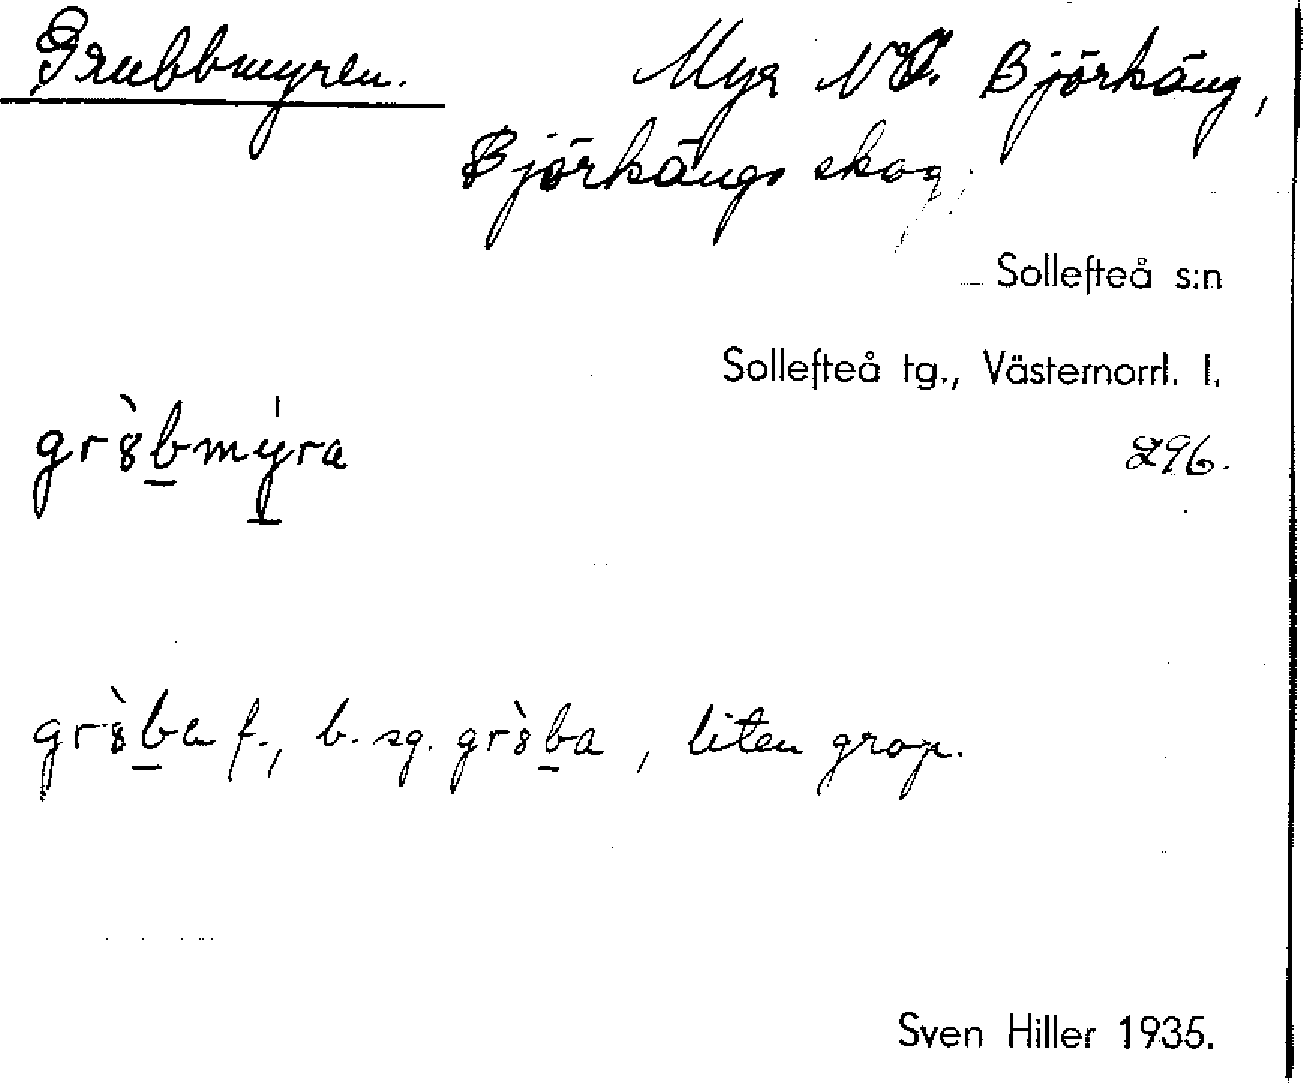 Grubbmyren. Myr NO. Björkäng,
Björkängs skog,
Sollefteå s:n
Sollefteå tg., Västernorrl. l.
gr8̀b̲mý̲ra
296.
gr8̀b̲a f., b. sg. gr8̀b̲a, liten grop.
Sven Hiller 1935.